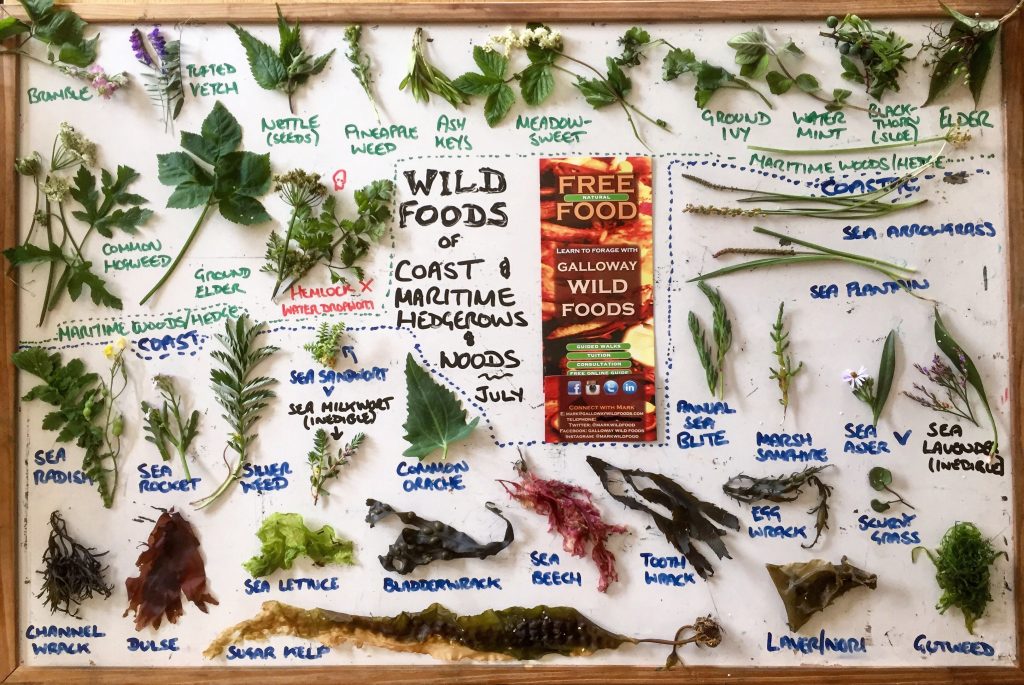 BRAMBLE
TUFTED
VETCH
NETTLE
(SEEDS)
PINEAPPLE
WEED
ASH
KEYS
MEADOW-
SWEET
GROUND
IVY
WATER
MINT
BLACK-
THORN
(SLOE)
ELDER
COMMON
HOGWEED
GROUND
ELDER
HEMLOCK X
WATER DROPWORT
MARITIME WOODS/HEDGE
COAST
WILD
FOODS
OF
COAST &
MARITIME
HEDGEROWS
&
WOODS
JULY
FREE
NATURAL
FOOD
LEARN TO FORAGE WITH
GALLOWAY
WILD
FOODS
GUIDED WALKS
TUITION
CONSULTATION
FREE ONLINE GUIDE
CONNECT WITH MARK
E:MARK@GALLOWAYWILDFOODS.COM
TELEPHONE
TWITTER:@MARKWILDFOOD
FACEBOOK: GALLOWAY WILD FOODS
INSTAGRAM @MARKWILDFOOD
MARITIME WOODS/HEDGE
COASTAL
SEA ARROWGRASS
SEA PLANTAIN
SEA
RADISH
SEA
ROCKET
SILVER
WEED
SEA SANDWORT
SEA MILKWORT
(INEDIBLE)
COMMON
ORACHE
ANNUAL
SEA
BLITE
MARSH
SAMPHIRE
SEA
ASTER
SEA
LAVENDER
(INEDIBLE)
CHANNEL
WRACK
DULSE
SEA LETTUCE
BLADDERWRACK
SEA
BEECH
TOOTH
WRACK
EGG
WRACK
SCURVY
GRASS
SUGAR KELP
LAVER/NORI
GUTWEED